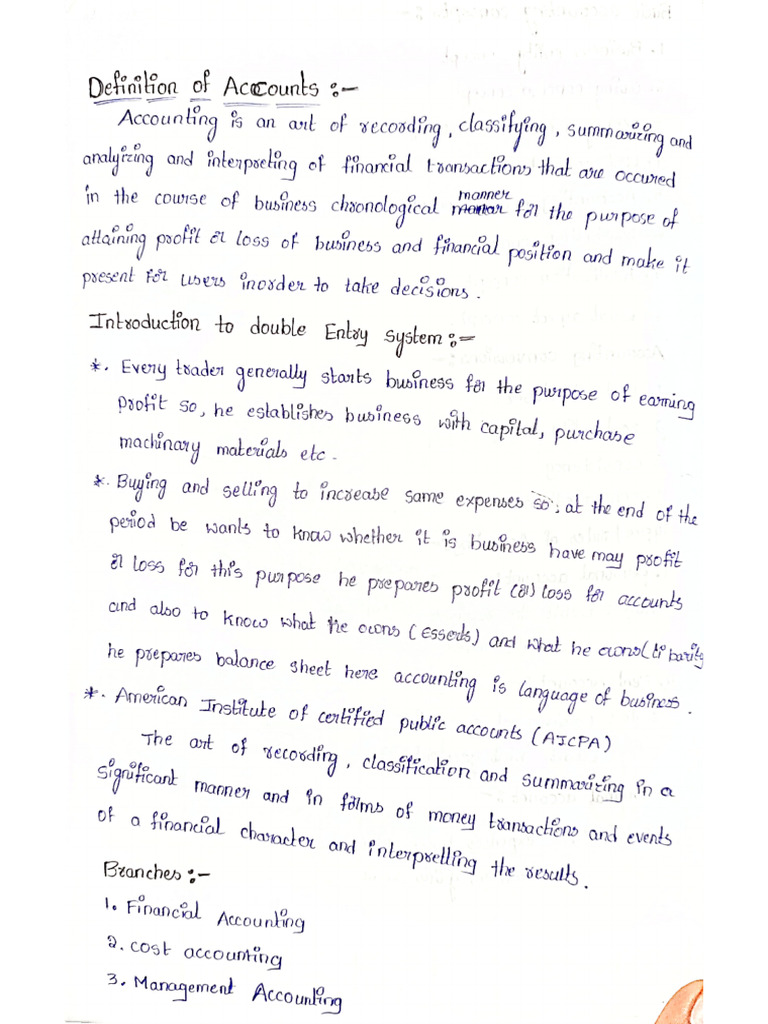 Definition of Accounts :-
Accounting is an art of recording, classifying, summarizing and
analyizing and interpreting of financial transactions that are occured
in the course of business chronological manner for the purpose of
attaining profit or loss of business and financial position and make it
present for users inorder to take decisions.
Introduction to double Entry system :-
*. Every trader generally starts business for the purpose of earning
profit so, he establishes business with capital, purchase
machinary materials etc.
*. Buying and selling to increase same expenses so, at the end of the
period be wants to know whether it is business have may profit
or loss for this purpose he prepares profit (or) loss for accounts
and also to know what he owns (Esserts) and what he owns (
he prepares balance sheet here accounting is language of business.
*. American Institute of certified public accounts (AICPA)
The art of recording, classification and summarizing in a
significant manner and in forms of money transactions and events
of a financial character and interpretling the results.
Branches :-
1. Financial Accounting
2. cost accounting
3. Management Accounting